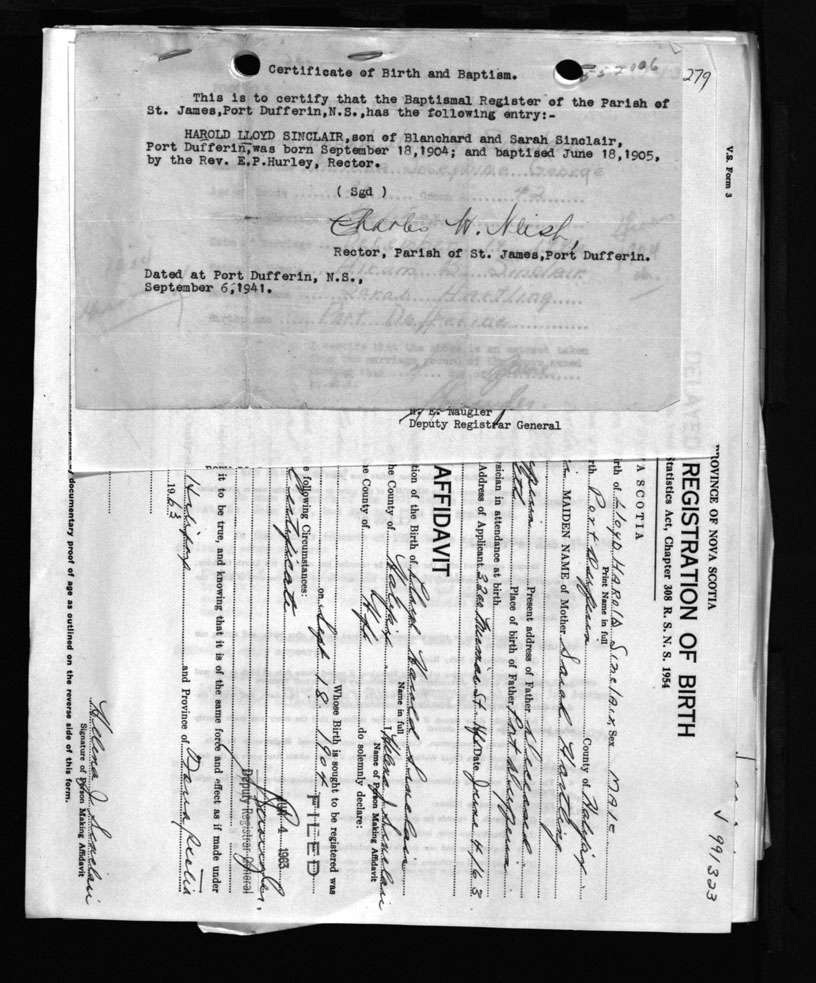 279
Certificate of Birth and Baptism.
This is to certify that the Baptismal Register of the Parish of
St. James,Port Dufferin,N.S.,has the following entry:-
HAROLD LLOYD SINCLAIR,son of Blanchard and Sarah Sinclair,
Port Dufferin,was born September 18,1904; and baptised June 18,1905,
by the Rev. E.P.Hurley, Rector.
( Sgd )
Charles W. Neish,
Rector, Parish of St. James,Port Dufferin.
Dated at Port Dufferin, N.S.,
September 6,1941.
V.S. Form 3
Naugler
Deputy Registrar General
V 991323
PROVINCE OF NOVA SCOTIA
DELAYED
REGISTRATION OF BIRTH
Statistics Act, Chapter 308 R. S. N. S. 1954
A SCOTIA
rth of Lloyd Harold Sinclair Sex Male
Print Name in full
rth Port Dufferin County of Halifax
MAIDEN NAME of Mother Sarah Hartling
Present address of Father deceased
Place of birth of Father Port Dufferin
sician in attendance at birth
Address of Applicant St. Hfx Date June 4/63
AFFIDAVIT
tion of the Birth of Lloyd Harold Sinclair
Name in full
he County of Halifax I, Helena J Sinclair
Name of Person Making Affidavit
he County of Hfx do solemnly declare:
Whose Birth is sought to be registered was
on Sept 18 1904
e following Circumstances:
Certificate
FILED
4 1963
Deputy Registrar General
it to be true, and knowing that it is of the same force and effect as if made under
Halifax and Province of Nova Scotia
1963
Helena J. Sinclair
Signature of Person Making Affidavit
documentary proof of age as outlined on the reverse side of this form.